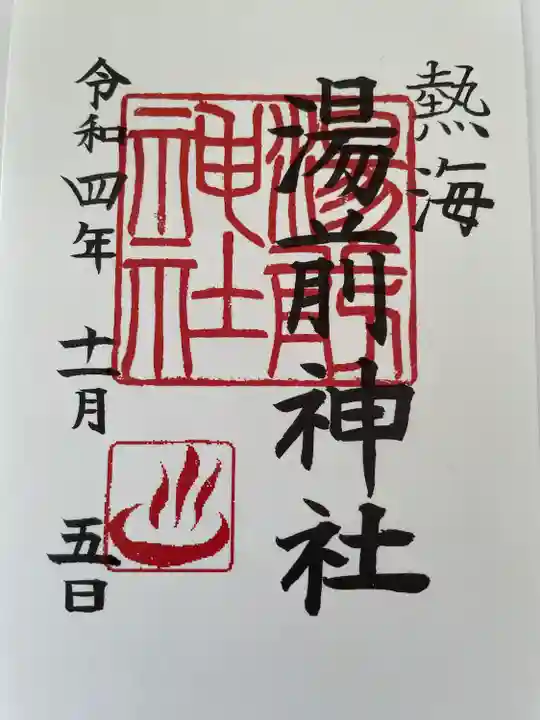 熱海
湯前神社
湯前神社
令和四年 十一月 五日